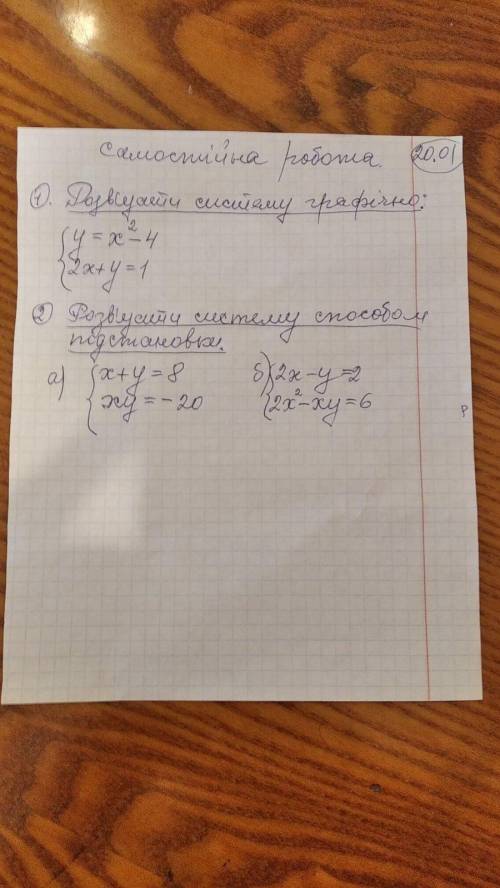 Самостійна робота. 20.01
1. Розв'язати систему графічно:
{y = x² - 4
{2x + y = 1
2 Розв'язати систему способом
підстановки.
а) {x + y = 8 б) {2x - y = 2
{xy = -20 {2x² - xy = 6